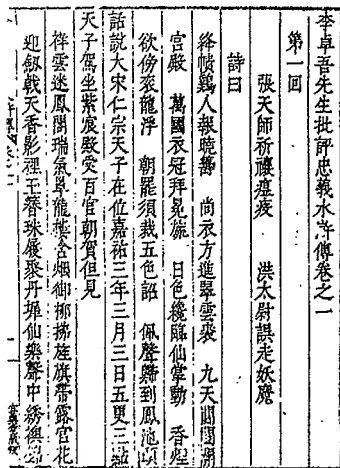 李卓吾先生批評忠義水滸傳卷之一
第一回
張天師祈禳瘟疫　洪太尉誤走妖魔
詩曰
絳幘鷄人報曉籌　尚衣方進翠雲裘　九天閶闔開
宮殿　萬國衣冠拜冕旒　日色纔臨仙掌動　香烟
欲傍衮龍浮　朝罷須裁五色詔　佩聲歸到鳳池頭
話說大宋仁宗天子在位嘉祐三年三月三日五更三點
天子駕坐紫宸殿受百官朝賀但見
祥雲迷鳳閣瑞氣罩龍樓含烟御柳拂旌旗帶露宮花
迎劒戟天香影裡玉簪珠履聚丹墀仙樂聲中綉襖